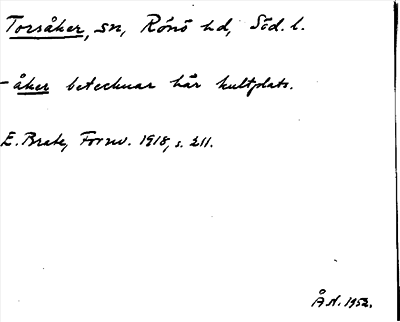 Torsåker, sn, Rönö hd, Söd. l.
-åker betecknar här kultplats.
E. Brate, Fornv. 1918, s. 211.
Å N. 1952.